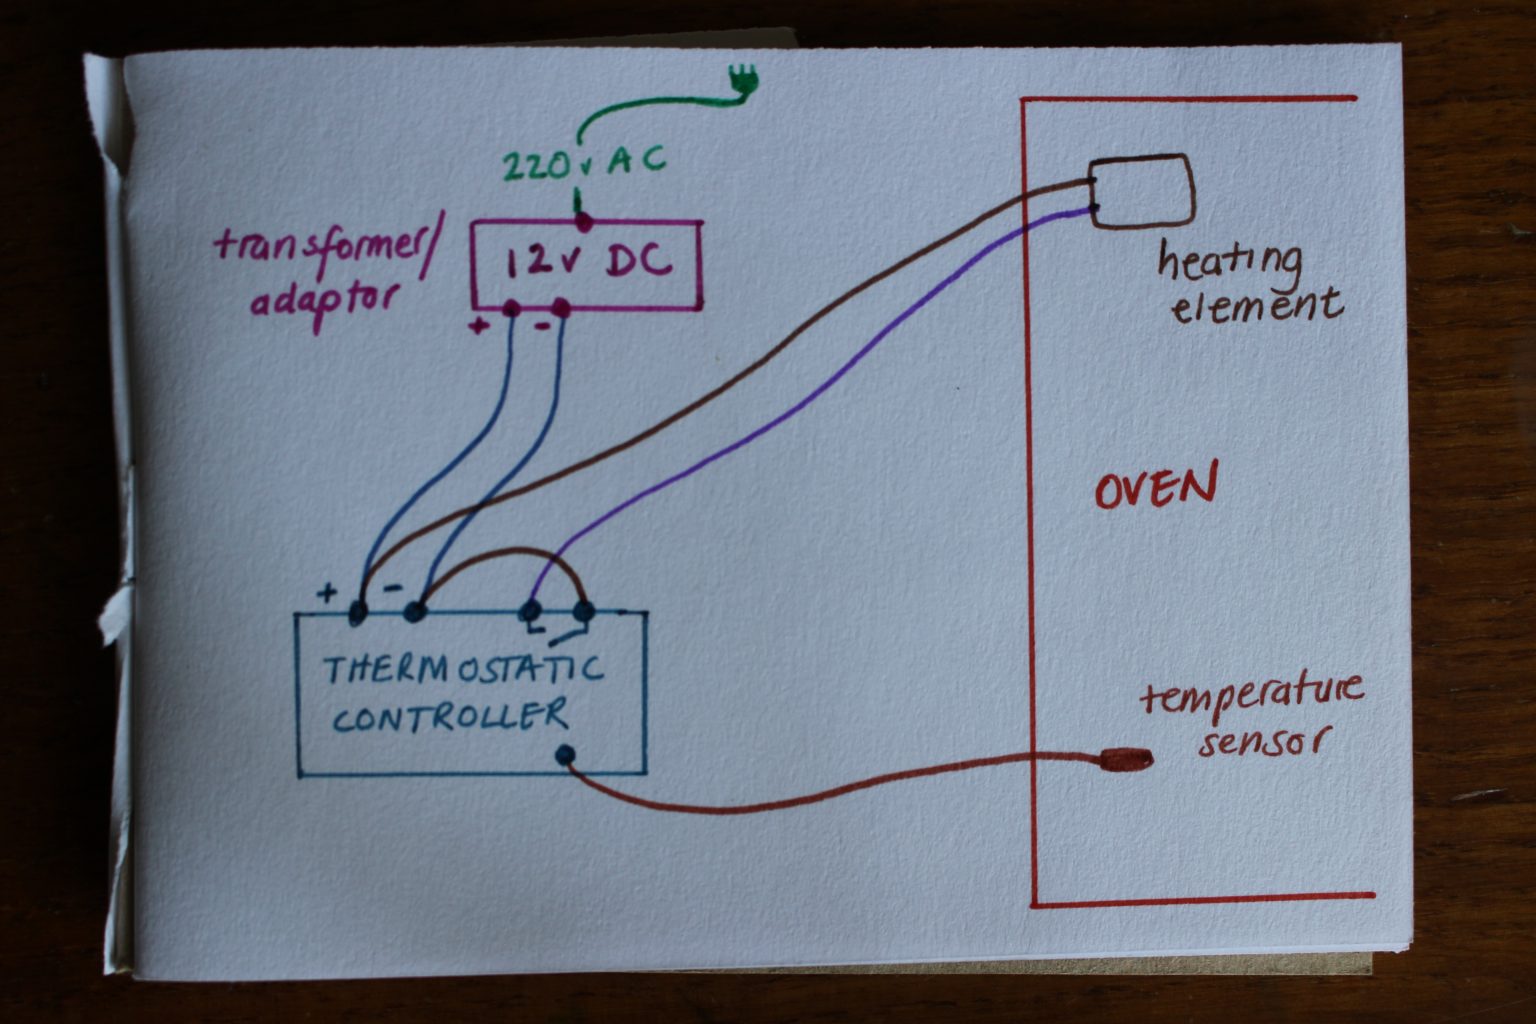 220v AC
transformer/
adaptor
12v DC
+ -
heating
element
OVEN
+ -
THERMOSTATIC
CONTROLLER
temperature
sensor